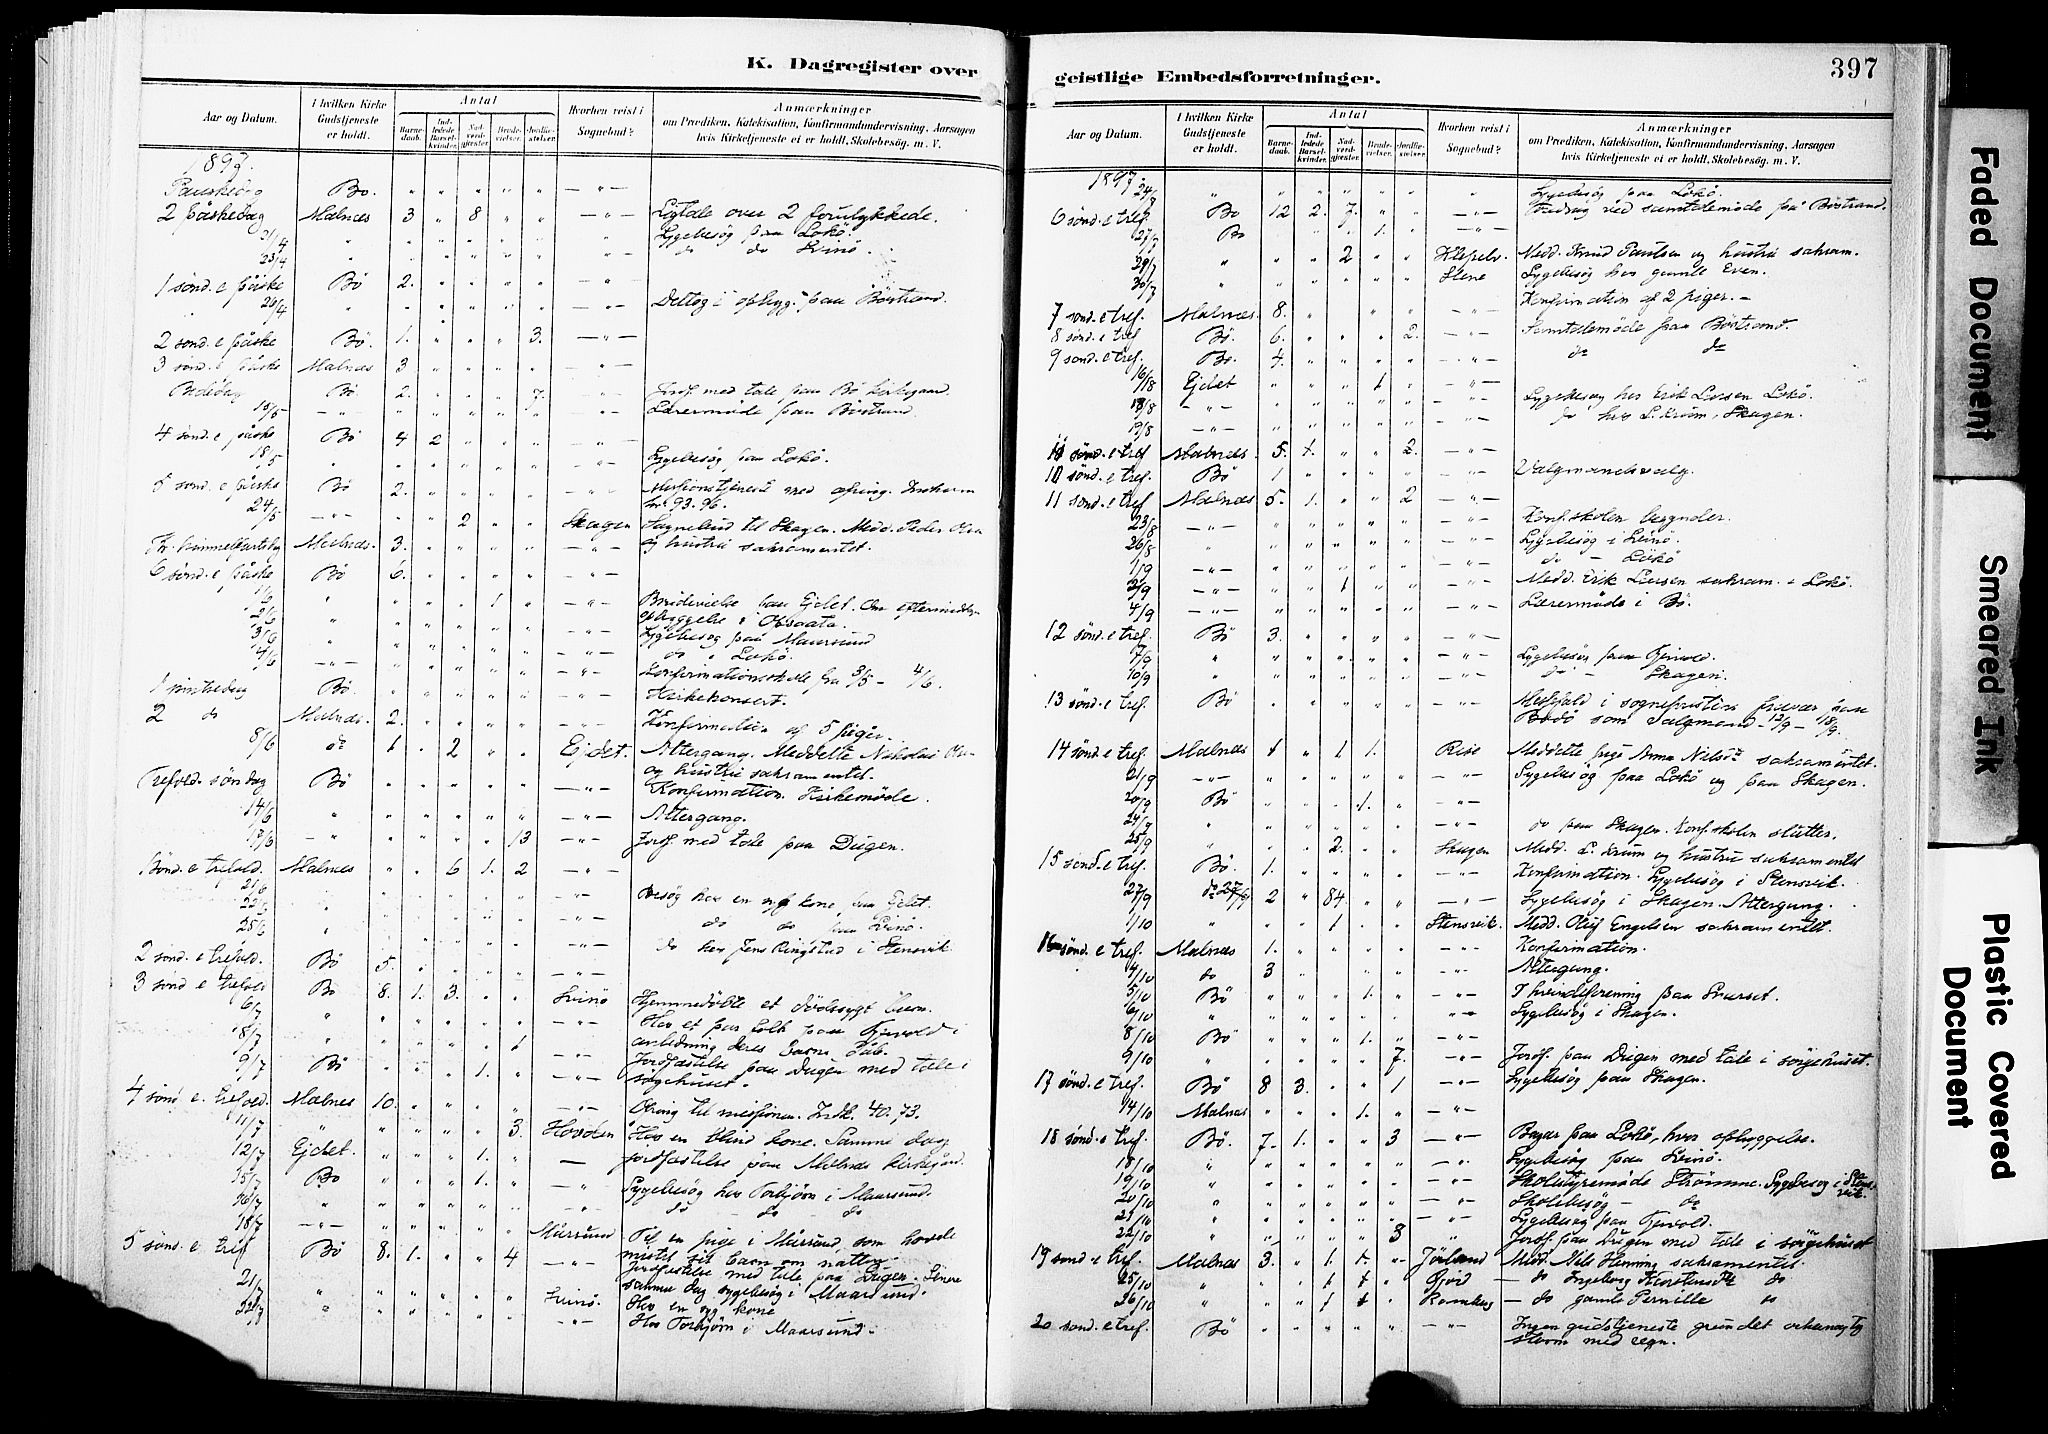 K. Dagregister over
Aar og Datum. I hvilken Kirke Gudstjeneste er holdt. Antal Hvorhen reist i Sognebud? Anmærkninger
Barnedaab. Indledede Barselkvinder. Nadverdgjester. Brudevielser. Jordfæstelser.
om Prædiken, Katekisation, Konfirmandundervisning, Aarsagen
hvis Kirketjeneste ei er holdt, Skolebesøg. m. V.
1897.
Paaskedag Bø. " " " " " — " —
2 påskedag Malnæs 3 " 8 " " — " — Ligtale over 2 forulykkede.
21/4 " Sygebesøg paa Lokø.
23/4 " do do Svinø.
1 sønd. e påske Bø 2.
26/4 Deltog i opbygg. paa Bøstrand.
2 sønd. e påske Bø. 1. 3. — " —
3 sønd. e påske Malnæs 3 — " —
Bededag Bø 2. 7. Jordf. med tale paa Bø kirkegaard.
Lærermøde paa Bøstrand.
4 sønd. e påske Bø 4 2
18/5 Sygebesøg paa Lokø.
5 sønd. e påske Bø 2. Missionstjeneste med ofring.
24/5 — " — 2 Skagen Sognebud til Skagen. Medd. Peder
Kr. himmelfartsdag Malnæs. 3. og hustru sakramentet.
6 sønd. e påske Bø 6.
1/6 1 Brudevielse paa Ejdet. Om eftermiddag
2/6 opbyggelse i
3/6 Sygebesøg paa Maarsund
4/6 — " — do " Lokø.
Konfirmationsskole fra 3/5 — 4/6.
1 pintsedag Bø. Kirkekonsert.
2 do Malnæs. 2. Konfirmation af 5 piger.
8/6 do 1 2 Ejdet. Altergang. Meddelte Nikolai
og hustru sakramentet.
Trefold. søndag Bø Konfirmation. Kirkemøde.
14/6 Altergang.
13 Jordf. med tale paa Dugen.
1 sønd. e trefold. Malnæs 6 1. 2 — " —
21/6 Besøg hos en syg kone paa Ejdet.
22/6 do do paa Svinø.
25/6 do hos Jens Ringstad i Stensvik
2 sønd. e trefold. Bø 5. — " —
3 sønd e trefold Bø 8. 1. 3. Svinø Hjemmedøbte et dødssygt barn.
6/7 Hos et par folk paa Fjærvold i
8/7 1 anledning deres Barns dåb.
9/7 Bø 1. Jordfæstelse paa Dugen med tale i
sørgehuset.
4 sønd e. trefold. Malnæs 10. Ofring til missionen. Indk. 40.73.
11/7 3. Hovden Hos en blind kone. Samme dag
12/7 Ejdet. 1. jordfæstelse paa Malnæs kirkegård.
15/7 Bø 1. Sygebesøg hos Torbjørn i Maarsund.
16/7 do — do do
18/7 — " — Maarsund Til en pige i Maarsund, som havde
5 sønd. e tref Bø 8. 1. 4 mistet sit barn om natten.
Jordfæstelse med tale paa Dugen. Senere
21/7 samme dag sygebesøg i Maarsund.
22/7 Svinø. Hos en syg kone
Hos Torbjørn i Maarsund.
geistlige Embedsforretninger.
397
Aar og Datum. I hvilken Kirke Gudstjeneste er holdt. Antal Hvorhen reist i Sognebud? Anmærkninger
Barnedaab. Indledede Barselkvinder. Nadverdgjester. Brudevielser. Jordfæstelser.
om Prædiken, Katekisation, Konfirmandundervisning, Aarsagen
hvis Kirketjeneste ei er holdt, Skolebesøg. m. V.
1897.
24/7 Sygebesøg paa Lokø.
6 sønd. e tref Bø 12 2. 7. Foredrag ved samtalemøde på Bøstrand.
27/7 Bø 1. — " —
29/7 2 Medd. Knud Paulsen og hustru sakram.
30/7 Stene Sygebesøg hos gamle Even.
Konfirmation af 2 piger. —
7 sønd. e tref. Malnæs 8.
8 sønd. e tref Bø. 6. 2. — " — Samtalemøde paa Bøstrand.
9 sønd. e tref. Bø. 4. do do
16/8 Ejdet 1 — " —
18/8 — " — Sygebesøg hos Erik Larsen Lokø.
19/8 — " — do hos L. Krum, Skagen.
11 sønd. e tref Malnæs. 5. 1. 2. — " —
10 sønd. e tref. Bø 1 Valgmandsvalg.
11 sønd. e tref Malnæs 5. 1. 2 — " —
23/8 — " — Konf.skolen begynder.
26/8 Sygebesøg i Svinø.
1/9 — " — do — Lokø
2/9 — " — 1 Medd. Erik Larsen sakram. i Lokø.
4/9 — " — Lærermøde i Bø.
12 sønd. e tref. Bø 3. — " —
7/9 Sygebesøg paa Fjærvold.
10/9 do — Skagen.
13 sønd. e tref. Bø Messefald i sogneprestens fravær paa
Bodø som Valgmand 12/9 — 18/9.
14 sønd. e tref. Malnæs 1 1 1. Rise Meddelte pige Anna Nilsd. sakramentet.
21/9 — " — Sygebesøg paa Lokø og paa Skagen.
20/9 Bø 1. — " —
24/9 do paa Skagen. Konf.skolen slutter.
25/9 2. Skagen Medd. L. Krum og hustru sakramentet
15 sønd. e tref. Bø. 1. Konfirmation. Sygebesøg i Stensvik.
27/9 do 27/9 2 84. Sygebesøg i Skagen. Altergang.
1/10 1 Stensvik. Medd. Oluf Engelsen sakramentet.
16 sønd. e tref. Malnæs 1. Konfirmation.
4/10 do 3 Altergang.
5/10 Bø 1. I kvindeforening paa
6/10 Sygebesøg i Skagen.
8/10 Bø 1.
9/10 7. Jordf. paa Dugen med tale i sørgehuset.
17 sønd. e tref. Bø 8 3. 1 Sygebesøg paa Skagen.
14/10 Malnæs 1. — " —
18 sønd. e tref. Bø. 7. 1. 3 — " — Bazar paa Lokø, hvor opbyggelse.
18/10 Sygebesøg paa Svinø.
19/10 Skolestyremøde Strømme. Sygebesøg i Stensvik.
20/10 Skolebesøg — do
21/10 Sygebesøg paa Fjærvold.
22/10 3 Jordf. paa Dugen med tale i sørgehuset
19 sønd. e tref. Malnæs 3. 1. 1. Jørland Medd. Nils Henning sakramentet.
25/10 1 1 Gjørd — do Ingeborg Kerstine do
26/10 1 1 — do gamle Pernille do
20 sønd. e tref. Bø Ingen gudstjeneste grundet orkanagtig
storm med regn.
Faded Document
Smeared Ink
Plastic Covered
Document